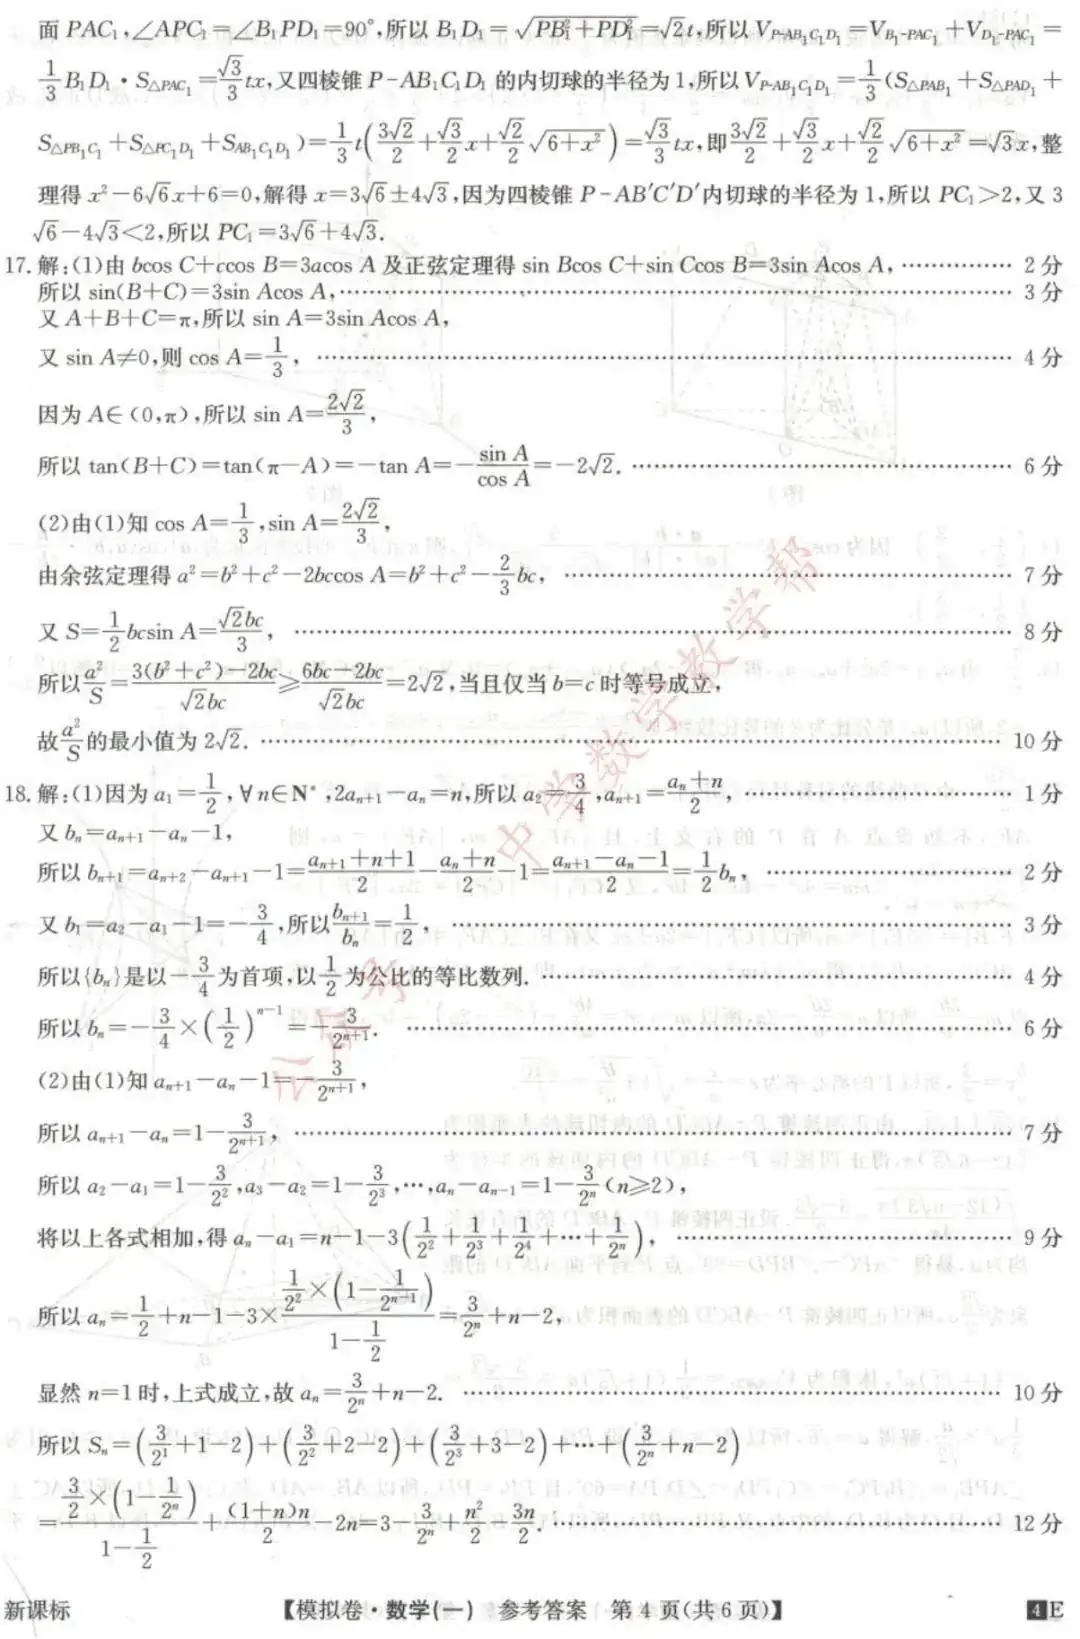 面 PAC₁,∠APC₁=∠B₁PD₁=90°,所以 B₁D₁=√(PB₁²+PD₁²)=√2t,所以 V_{P-AB₁C₁D₁}=V_{B₁-PAC₁}+V_{D₁-PAC₁}=
1/3 B₁D₁·S△PAC₁=√3/3 tx,又四棱锥 P-AB₁C₁D₁ 的内切球的半径为 1,所以 V_{P-AB₁C₁D₁}=1/3(S△PAB₁+S△PAD₁+
S△PB₁C₁+S△PC₁D₁+S_{AB₁C₁D₁})=1/3 t(3√2/2+√3/2 x+√2/2 √(6+x²))=√3/3 tx,即3√2/2+√3/2 x+√2/2 √(6+x²)=√3x,整
理得 x²-6√6x+6=0,解得 x=3√6±4√3,因为四棱锥 P-AB′C′D′内切球的半径为 1,所以 PC₁>2,又 3
√6-4√3<2,所以 PC₁=3√6+4√3.
17.解:(1)由 bcos C+ccos B=3acos A 及正弦定理得 sin Bcos C+sin Ccos B=3sin Acos A,…………… 2分
所以 sin(B+C)=3sin Acos A,…………… 3分
又 A+B+C=π,所以 sin A=3sin Acos A,
又 sin A≠0,则 cos A=1/3,…………… 4分
因为 A∈(0,π),所以 sin A=2√2/3,
所以 tan(B+C)=tan(π-A)=-tan A=-sin A/cos A=-2√2.…………… 6分
(2)由(1)知 cos A=1/3,sin A=2√2/3,
由余弦定理得 a²=b²+c²-2bccos A=b²+c²-2/3 bc,…………… 7分
又 S=1/2 bcsin A=√2bc/3,…………… 8分
所以 a²/S=(3(b²+c²)-2bc)/(√2bc)≥(6bc-2bc)/(√2bc)=2√2,当且仅当 b=c 时等号成立,
故 a²/S 的最小值为 2√2.…………… 10分
18.解:(1)因为 a₁=1/2,∀n∈N*,2aₙ₊₁-aₙ=n,所以 a₂=3/4,aₙ₊₁=(aₙ+n)/2,…………… 1分
又 bₙ=aₙ₊₁-aₙ-1,
所以 bₙ₊₁=aₙ₊₂-aₙ₊₁-1=(aₙ₊₁+n+1)/2-(aₙ+n)/2-1=(aₙ₊₁-aₙ-1)/2=1/2 bₙ,…………… 2分
又 b₁=a₂-a₁-1=-3/4,所以 bₙ₊₁/bₙ=1/2,…………… 3分
所以{bₙ}是以-3/4为首项,以1/2为公比的等比数列.…………… 4分
所以 bₙ=-3/4×(1/2)ⁿ⁻¹=-3/2ⁿ⁺¹.…………… 6分
(2)由(1)知 aₙ₊₁-aₙ-1=-3/2ⁿ⁺¹,
所以 aₙ₊₁-aₙ=1-3/2ⁿ⁺¹,…………… 7分
所以 a₂-a₁=1-3/2²,a₃-a₂=1-3/2³,…,aₙ-aₙ₋₁=1-3/2ⁿ(n≥2),
将以上各式相加,得 aₙ-a₁=n-1-3(1/2²+1/2³+1/2⁴+…+1/2ⁿ),…………… 9分
所以 aₙ=1/2+n-1-3×(1/2²×(1-1/2ⁿ⁻¹))/(1-1/2)=3/2ⁿ+n-2,
显然 n=1 时,上式成立,故 aₙ=3/2ⁿ+n-2.…………… 10分
所以 Sₙ=(3/2¹+1-2)+(3/2²+2-2)+(3/2³+3-2)+…+(3/2ⁿ+n-2)
=(3/2×(1-1/2ⁿ))/(1-1/2)+(1+n)n/2-2n=3-3/2ⁿ+n²/2-3n/2.…………… 12分
新课标 【模拟卷·数学(一) 参考答案 第 4 页(共 6 页)】 4 E